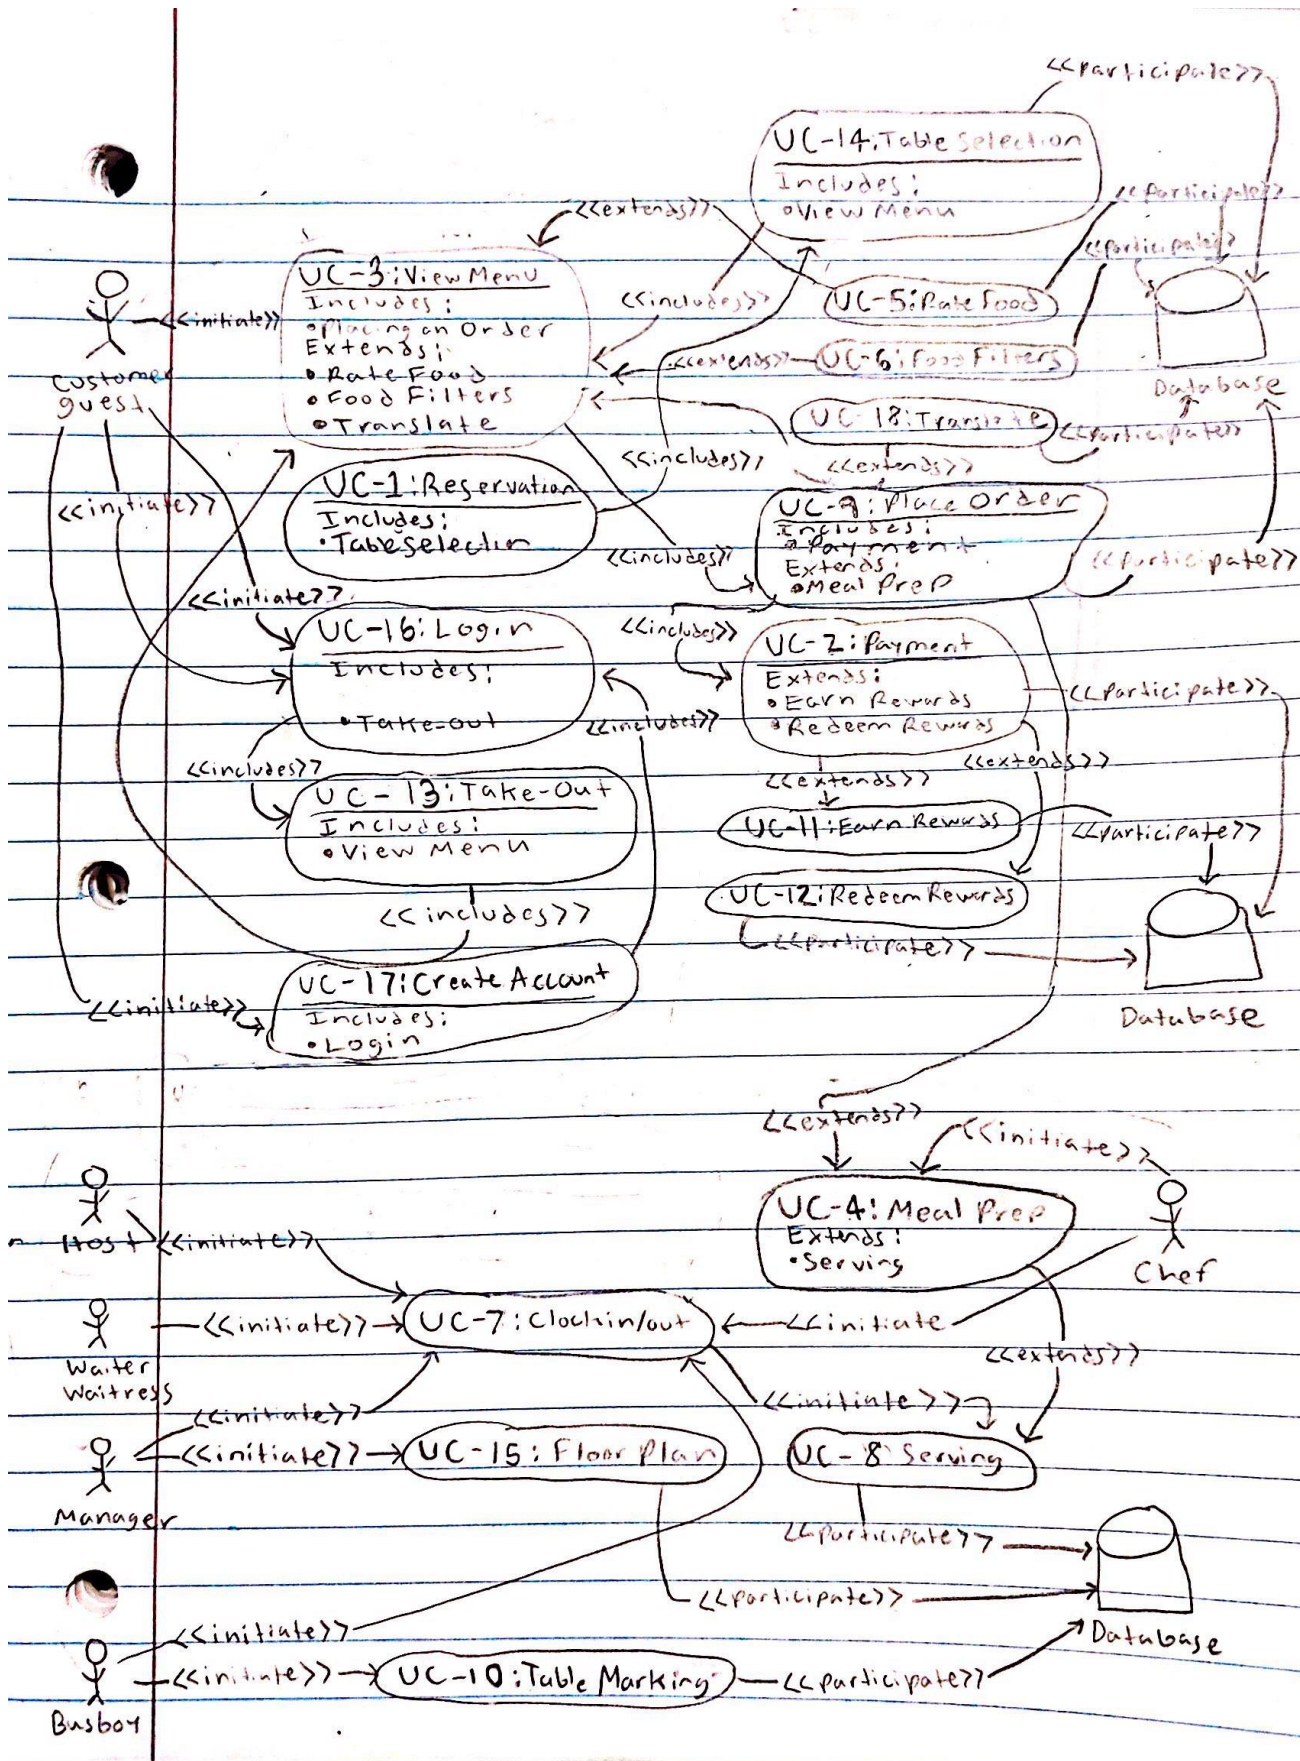 <<participate>>
UC-14:Table Selection
Includes:
•View Menu
<<participate>>
<<extends>>
<<participate>>
UC-3:View Menu
Includes:
•Placing an Order
Extends:
•Rate Food
•Food Filters
•Translate
<<initiate>>
Customer
guest
<<includes>>
UC-5:Rate Food
<<extends>>
UC-6:Food Filters
Database
UC-18:Translate
<<participate>>
<<includes>>
<<extends>>
UC-1:Reservation
Includes:
•Table Selectin
<<initiate>>
UC-9:Place Order
Includes:
•Payment
Extends:
•Meal Prep
<<includes>>
<<participate>>
<<initiate>>
UC-16:Login
Includes:
•Take-out
<<includes>>
UC-2:Payment
Extends:
•Earn Rewards
•Redeem Rewards
<<participate>>
<<includes>>
<<includes>>
<<extends>>
<<extends>>
UC-13:Take-Out
Includes:
•View Menu
UC-11:Earn Rewards
<<participate>>
UC-12:Redeem Rewards
<<includes>>
<<participate>>
UC-17:Create Account
Includes:
•Login
<<initiate>>
Database
<<extends>>
<<initiate>>
UC-4:Meal Prep
Extends:
•Serving
Chef
Host
<<initiate>>
<<initiate>>
UC-7:Clockin/out
<<initiate
Waiter
Waitress
<<extends>>
<<initiate>>
<<initiate>>
<<initiate>>
UC-15:Floor Plan
UC-8 Serving
Manager
<<participate>>
<<participate>>
Database
<<initiate>>
<<initiate>>
UC-10:Table Marking
<<participate>>
Busboy